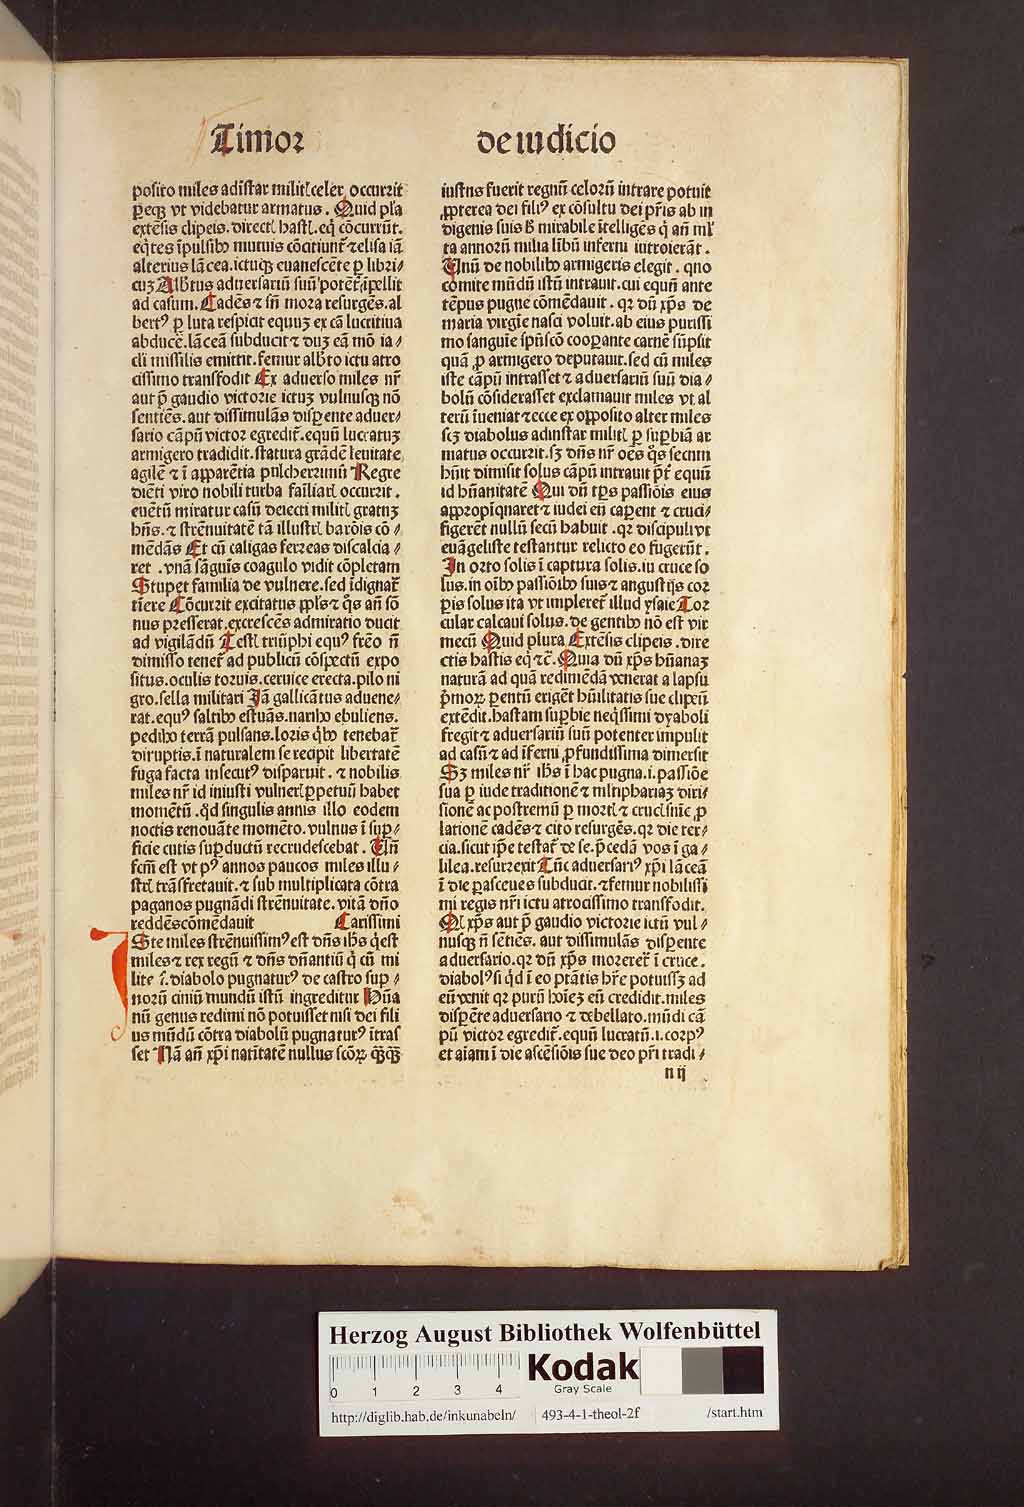 Timor de iudicio
posito miles adīstar militꝭ celer occurrit
ꝑeqꝫ vt videbatur armatus . Quid pl'a
extēsis clipeis . directꝭ hastꝭ . eq̇ cōcurrūt .
eq̇tes īpulsibꝰ mutuis cōcitiunt᷑ ⁊ elisa iā
alterius lācea . ictuqꝫ euanescēte ꝑ libri⸗
cuꝫ Albꝰtus aduersariū suū potēt᷑ īpellit
ad casum . Cadēs ⁊ sn̄ mora resurgēs . al
bertꝰ ꝑ luta respicit equuꝫ ex cā lucritiua
abducē . lāceā subducit ⁊ duꝫ eā mō ia⸗
cl'i missilis emittit . femur alb'to ictu atro
cissimo transfodit Ex aduerso miles nr̄
aut p̄ gaudio victorie ictuꝫ vulnusqꝫ nō
sentiēs . aut dissimulās disꝑente aduer⸗
sario cāpū victor egredit᷑ . equū lucratuꝫ
armigero tradidit . statura grādē leuitate
agilē ⁊ ī apparētia pulcherrimū Regre
diēti viro nobili turba fāiliarꝭ occurrit .
euētū miratur casū deiecti militꝭ gratuꝫ
hn̄s . ⁊ strēnuitatē tā illustrꝭ barōis cō⸗
mēdās Et cū caligas ferreas discalcia⸗
ret . vnā sāguīs coagulo vidit cōpletam
Stupet familia de vulnere . sed īdignat᷑
tīere Cōcurrit excitatus ppl's ⁊ q̊s añ sō
nus presserat . excrescēs admiratio ducit
ad vigilādū Testꝭ triūphi equꝰ frēo n̄
dimisso tenet᷑ ad publicū cōspectū expo
situs . oculis toruis . ceruice erecta . pilo ni
gro . sella militari Jā gallicātus aduene⸗
rat . equꝰ saltibꝰ estuās . naribꝰ ebuliens .
pedibꝰ terrā pulsans . loris q̇bꝰ tenebat᷑
diruptis . ī naturalem se recipit libertatē
fuga facta insecutꝰ disparuit . ⁊ nobilis
miles nr̄ id iniusti vulnerꝭ ꝑpetuū habet
momētū . qd̄ singulis annis illo eodem
noctis renouāte momēto . vulnus ī suꝑ⸗
ficie cutis suꝑductū recrudescebat . Un̄
fcm̄ est vt pꝰ annos paucos miles illu⸗
strꝭ trāsfretauit . ⁊ sub multiplicata cōtra
paganos pugnādi strēnuitate . vitā dn̄o
reddēs cōmēdauit Carissimi
JSte miles strēnuissimꝰ est dn̄s ihs̄ q̇ est
miles ⁊ rex regū ⁊ dn̄s dn̄antiū q̇ cū mi
lite .i. diabolo pugnaturꝰ de castro suꝑ⸗
norū ciuiū mundū istū ingreditur Hūa
nū genus redimi nō potuisset nisi dei fili
us mūdū cōtra diabolū pugnaturꝰ ītras
set Nā añ xp̄i natītatē nullus scōꝝ qꝫqꝫ
iustus fuerit regnū celorū intrare potuit
ꝓpterea dei filiꝰ ex cōsultu dei pr̄is ab in
digenis suis ɫꝫ mirabile ītelligēs q̇ añ ml'
ta annorū milia libū infernu introierāt .
Unū de nobilibꝰ armigeris elegit . quo
comite mūdū istū intrauit . cui equū ante
tēpus pugne cōmēdauit . qꝛ dū xp̄s de
maria virgīe nasci voluit . ab eius purissi
mo sanguīe spūscō cooꝑante carnē sūpsit
quā ꝓ armigero deputauit . sed cū miles
iste cāpū intrasset ⁊ aduersariū suū dia⸗
bolū cōsiderasset exclamauit miles vt al
terū īueniat ⁊ ecce ex opposito alter miles
scꝫ diabolus adinstar militꝭ ꝑ suꝑbiā ar
matus occurrit . sꝫ dn̄s nr̄ oēs q̊s secum
hūit dimisit solus cāpū intrauit p̄t᷑ equū
id hūanitatē Qui dū tp̄s passiōis eius
appropīquaret ⁊ iudei eū caꝑent ⁊ cruci⸗
figerēt nullū secū habuit . qꝛ discipuli vt
euāgeliste testantur relicto eo fugerūt .
In orto solis ī captura solis . iu cruce so
lus . in oībꝰ passiōibꝰ suis ⁊ angustijs cor
ꝑis solus ita vt impleret᷑ illud ysaie Tor
cular calcaui solus . de gentibꝰ nō est vir
mecū Quid plura Extēsis clipeis . dire
ctis hastis eq̇ ⁊c̄ . Quia dn̄ xp̄s hūanaꝫ
naturā ad quā redimēdā venerat a lapsu
p̄moꝝ ꝑentū erigēt hūilitatis sue clipeū
extēdit . hastam suꝑbie neq̇ssimi dyaboli
fregit ⁊ aduersariū suū potenter impulit
ad casū ⁊ ad īferni ꝓfundissima dimersit
Sꝫ miles nr̄ ihs̄ ī hac pugna .i. passiōe
sua ꝑ iude traditionē ⁊ mltiphariaꝫ diri⸗
sionē ac postremū ꝑ mortꝭ ⁊ crucꝭ sinīe ꝓ
lationē cadēs ⁊ cito resurgēs . qꝛ die ter⸗
cia . sicut ip̄e testat᷑ de se . p̄cedā vos ī ga⸗
lilea . resurrexit Tūc aduersariꝰ xp̄i lāceā
ī die parasceues subducit . ⁊ femur nobilissi
mi regis nr̄i ictu atrocissimo transfodit .
Ql xp̄s aut p̄ gaudio victorie ictū vul⸗
nusqꝫ n̄ sētiēs . aut dissimulās disꝑente
aduersario . qꝛ dū xp̄s morerer᷑ ī cruce .
diabolꝰ si q̇d ī eo ptātis hr̄e potuissꝫ ad
eū venit qꝛ purū hoīeꝫ eū credidit . miles
disꝑēte aduersario ⁊ debellato . mūdi cā
pū victor egredit᷑ . equū lucratū .i. corpꝰ
et aīam ī die ascēsiōis sue deo pr̄i tradi⸗
n ij
Herzog August Bibliothek Wolfenbüttel
0 1 2 3 4
Kodak
Gray Scale
http://diglib.hab.de/inkunabeln/ 493-4-1-theol-2f /start.htm